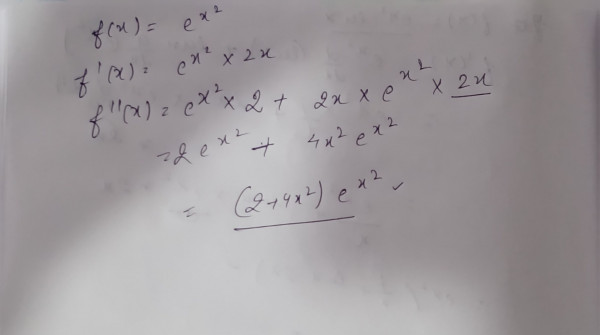 f(x) = e^{x^2}
f'(x) = e^{x^2} × 2x
f''(x) = e^{x^2} × 2 + 2x × e^{x^2} × 2x
= 2e^{x^2} + 4x^2 e^{x^2}
= (2+4x^2) e^{x^2} ✓